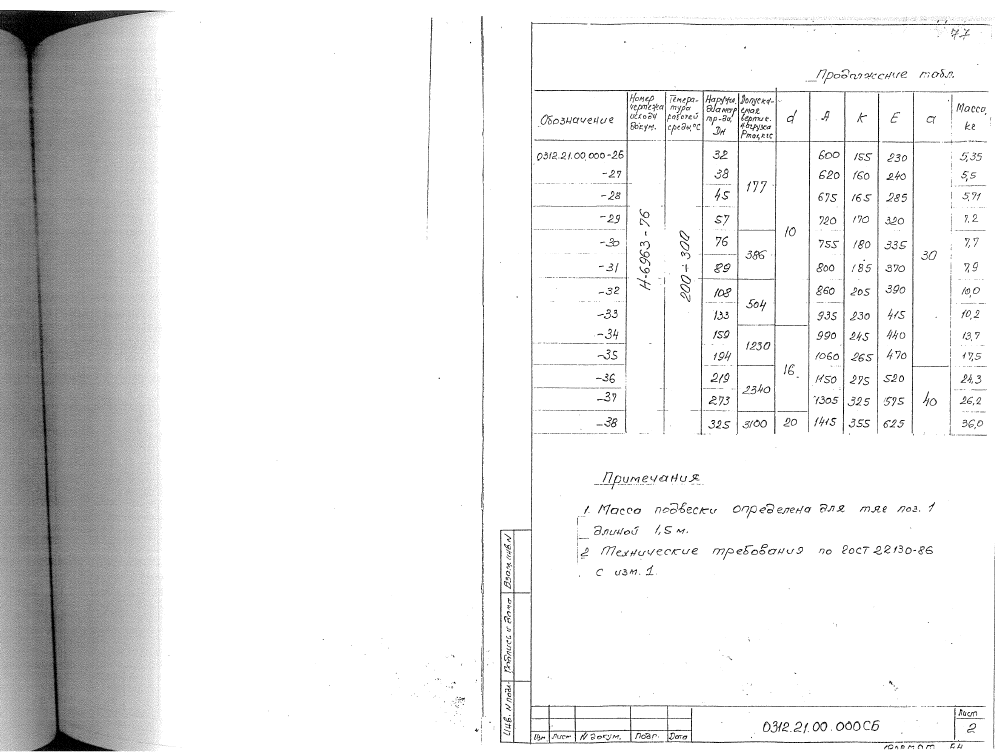 77
Продолжение табл.
Обозначение | Номер чертежа исходн докум. | Темпера-тура рабочей среды, °С | Наружн. диаметр тр-да, Dн | Допуска-емая вертик. нагрузка Pmax, кгс | d | A | K | E | a | Масса, кг
0312.21.00.000-26 | Н-6963-76 | 200÷300 | 32 | 177 | 10 | 600 | 155 | 230 | 30 | 5,35
-27 | 38 | 620 | 160 | 240 | 5,5
-28 | 45 | 675 | 165 | 285 | 5,71
-29 | 57 | 720 | 170 | 320 | 7,2
-30 | 76 | 386 | 755 | 180 | 335 | 7,7
-31 | 89 | 800 | 185 | 370 | 7,9
-32 | 108 | 504 | 860 | 205 | 390 | 10,0
-33 | 133 | 935 | 230 | 415 | 10,2
-34 | 159 | 1230 | 16 | 990 | 245 | 440 | 13,7
-35 | 194 | 1060 | 265 | 470 | 17,5
-36 | 219 | 2340 | 1150 | 275 | 520 | 40 | 24,3
-37 | 273 | 1305 | 325 | 575 | 26,2
-38 | 325 | 3100 | 20 | 1415 | 355 | 625 | 36,0
Примечания
1. Масса подвески определена для тяг поз. 1
длиной 1,5 м.
2 Технические требования по ГОСТ 22130-86
с изм. 1.
Взам. инв. N
Подпись и дата
Инв. N подл.
Изм Лист N докум. Подп. Дата
0312.21.00.000СБ
Лист
2
Формат